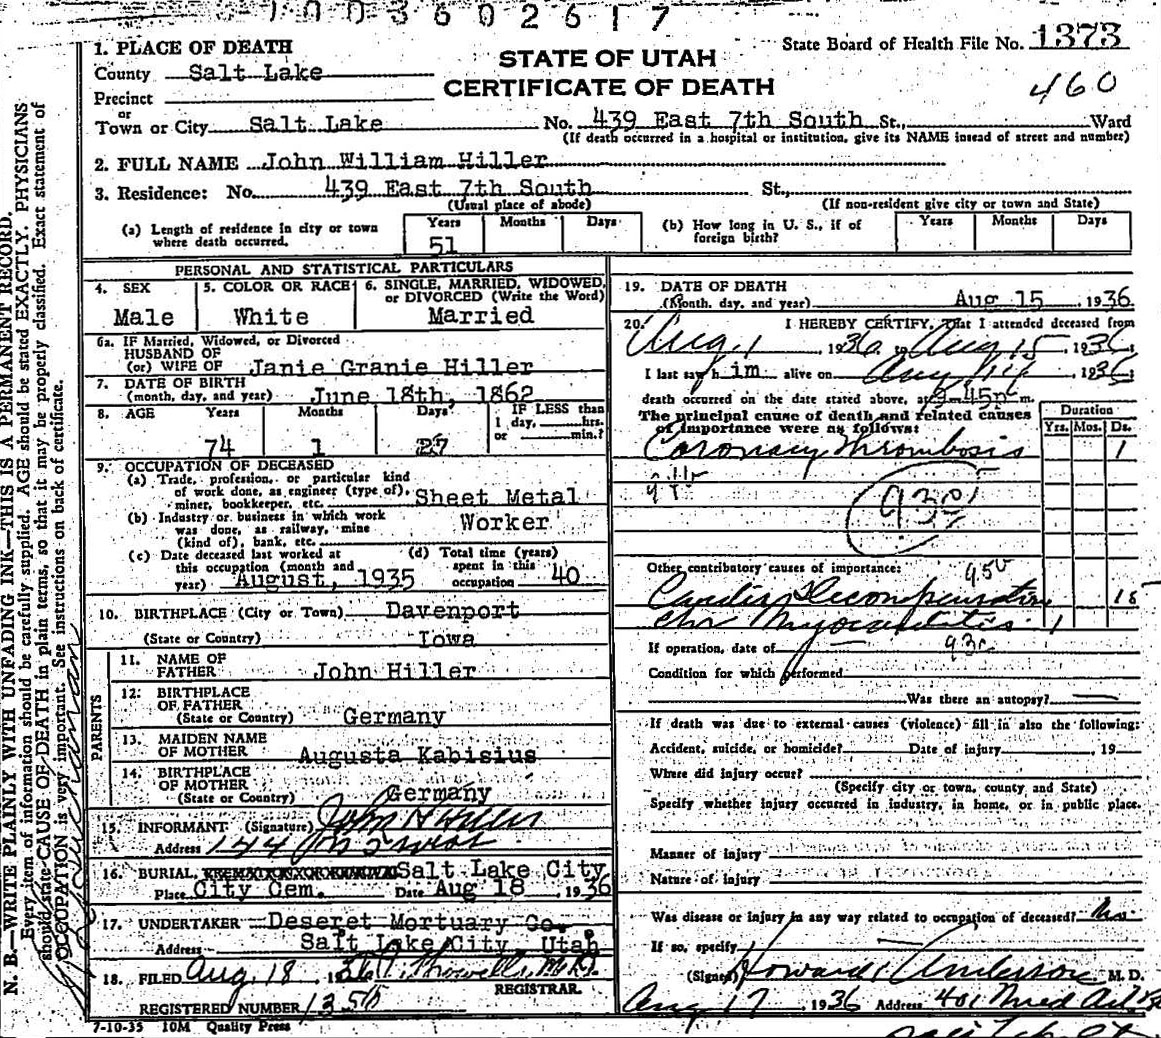 1003602617
1. PLACE OF DEATH
County Salt Lake
Precinct
or
Town or City Salt Lake
STATE OF UTAH
CERTIFICATE OF DEATH
State Board of Health File No. 1373
460
No. 439 East 7th South St., Ward
(If death occurred in a hospital or institution, give its NAME insead of street and number)
2. FULL NAME John William Hiller
3. Residence: No. 439 East 7th South St.,
(Usual place of abode) (If non-resident give city or town and State)
(a) Length of residence in city or town
where death occurred.
Years Months Days
51
(b) How long in U. S., if of
foreign birth?
Years Months Days
PERSONAL AND STATISTICAL PARTICULARS
4. SEX
Male
5. COLOR OR RACE
White
6. SINGLE, MARRIED, WIDOWED,
or DIVORCED (Write the Word)
Married
6a. IF Married, Widowed, or Divorced
HUSBAND OF
(or) WIFE OF Janie Granie Hiller
7. DATE OF BIRTH
(month, day, and year) June 18th, 1862
8. AGE Years Months Days IF LESS than
1 day, hrs.
or min.?
74 1 27
9. OCCUPATION OF DECEASED
(a) Trade, profession, or particular kind
of work done, as engineer (type of),
miner, bookkeeper, etc. Sheet Metal
(b) Industry or business in which work
was done, as railway, mine
(kind of), bank, etc.
Worker
(c) Date deceased last worked at
this occupation (month and
year) August, 1935
(d) Total time (years)
spent in this
occupation 40
10. BIRTHPLACE (City or Town) Davenport
(State or Country) Iowa
PARENTS
11. NAME OF
FATHER John Hiller
12. BIRTHPLACE
OF FATHER
(State or Country) Germany
13. MAIDEN NAME
OF MOTHER Augusta Kabisius
14. BIRTHPLACE
OF MOTHER
(State or Country) Germany
15. INFORMANT (Signature) John H Hiller
Address 144
16. BURIAL, Salt Lake City
Place City Cem. Date Aug 18, 1936
17. UNDERTAKER Deseret Mortuary Co.
Address Salt Lake City, Utah
18. FILED Aug. 18 1936 M.D.
REGISTRAR
REGISTERED NUMBER 1355
7-10-35 10M Quality Press
19. DATE OF DEATH
(Month, day, and year) Aug 15, 1936
20. I HEREBY CERTIFY, That I attended deceased from
Aug. 1 1936 to Aug 15, 1936
I last saw him alive on Aug 14, 1936
death occurred on the date stated above, at 45 m.
The principal cause of death and related causes
of importance were as follows:
Duration
Yrs. Mos. Ds.
Coronary Thrombosis 1
Other contributory causes of importance:
950
Cardiac Decompensation 15
Chr Myocarditis 1
If operation, date of 93c
Condition for which performed
Was there an autopsy?
If death was due to external causes (violence) fill in also the following:
Accident, suicide, or homicide? Date of injury , 19
Where did injury occur?
(Specify city or town, county and State)
Specify whether injury occurred in industry, in home, or in public place.
Manner of injury
Nature of injury
Was disease or injury in any way related to occupation of deceased? No
If so, specify
(Signed) Howard Anderson M. D.
Aug 17 1936 Address 401 Med Arts
N. B.—WRITE PLAINLY WITH UNFADING INK—THIS IS A PERMANENT RECORD.
Every item of information should be carefully supplied. AGE should be stated EXACTLY. PHYSICIANS
should state CAUSE OF DEATH in plain terms, so that it may be properly classified. Exact statement of
OCCUPATION is very important. See instructions on back of certificate.